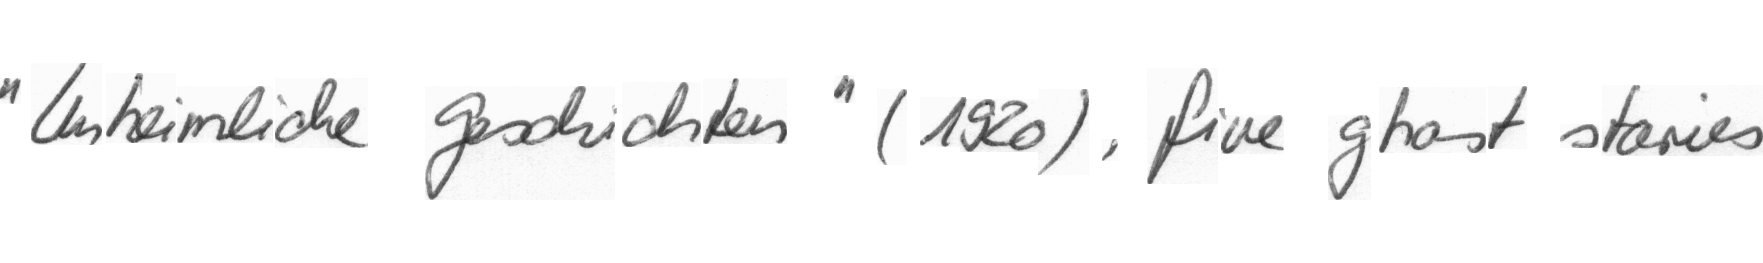 "Unheimliche Geschichten" (1920), five ghost stories